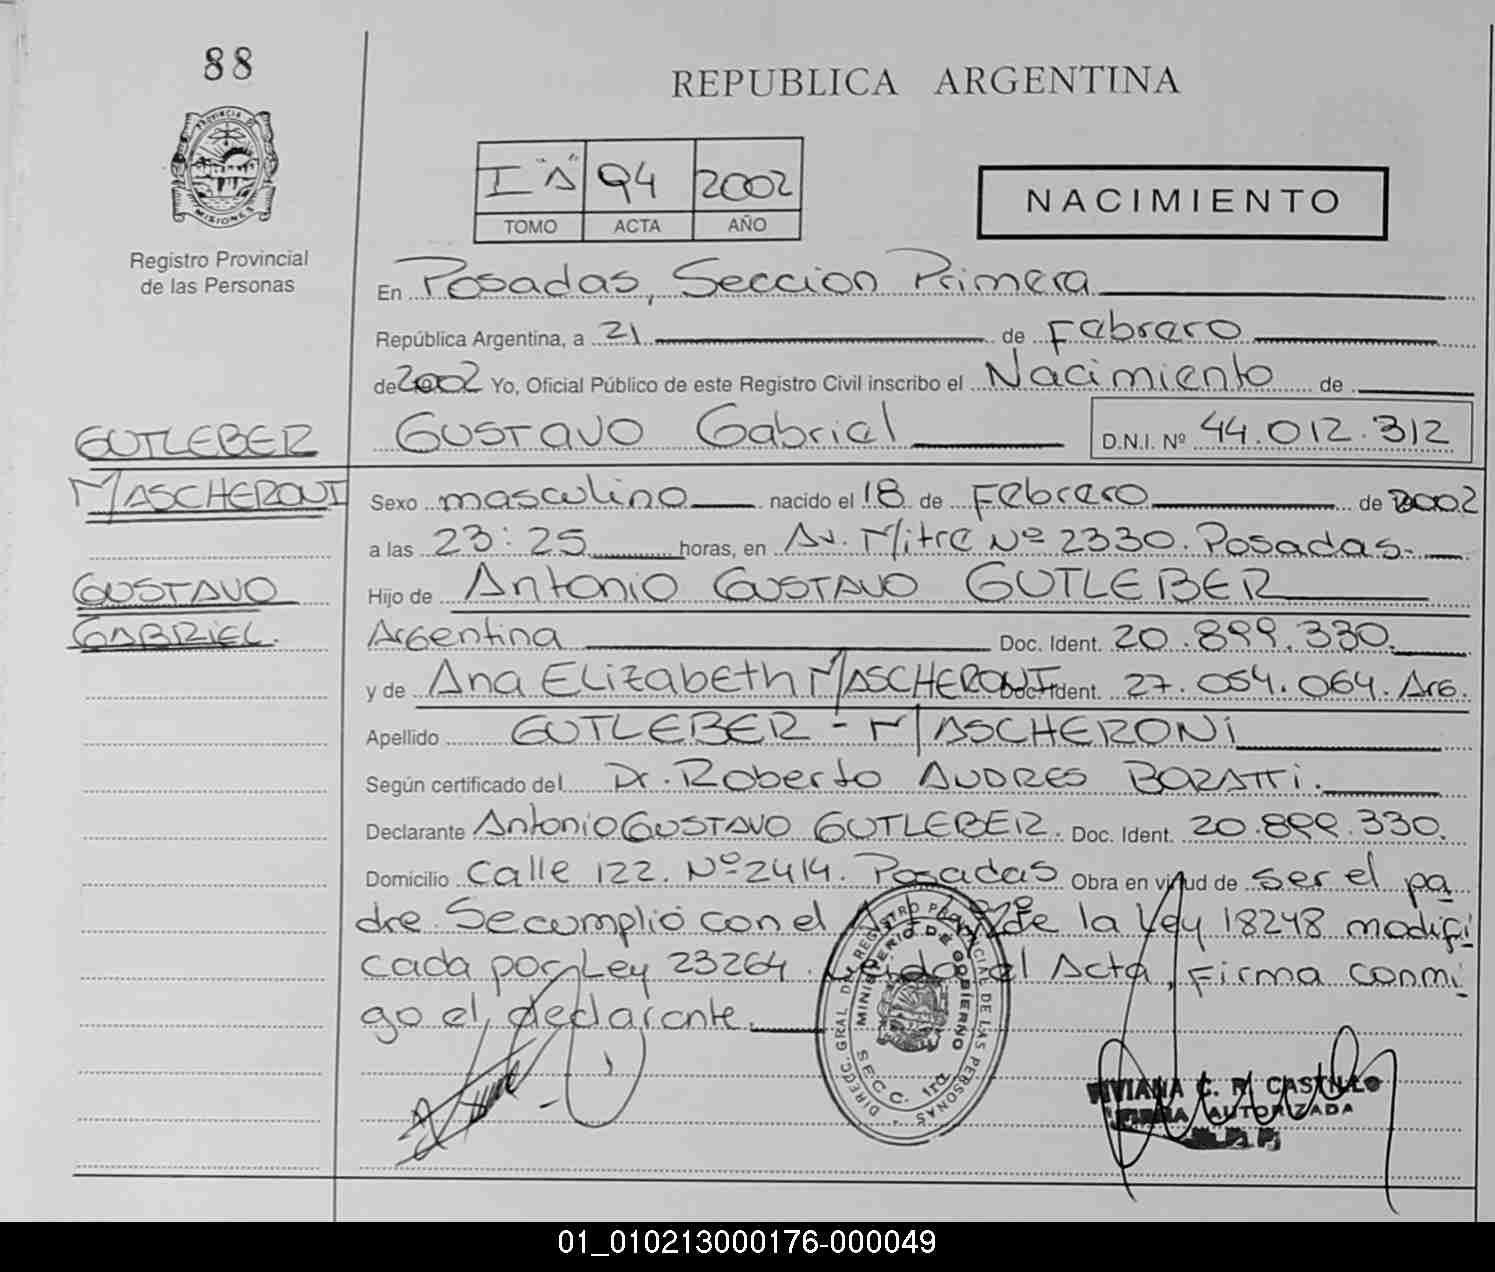 88
REPUBLICA ARGENTINA
PROVINCIA DE
MISIONES
Registro Provincial
de las Personas
I "A" 94 2002
TOMO ACTA AÑO
NACIMIENTO
En Posadas, Seccion Primera
República Argentina, a 21 de Febrero
de 2002 Yo, Oficial Público de este Registro Civil inscribo el Nacimiento de
Gustavo Gabriel D.N.I. Nº 44.012.312
GUTLEBER
MASCHERONI
GUSTAVO
GABRIEL.
Sexo masculino nacido el 18 de Febrero de 2002
a las 23:25 horas, en Av. Mitre Nº 2330. Posadas.
Hijo de Antonio GUSTAVO GUTLEBER
Argentina Doc. Ident. 20.899.330.
y de Ana ELizabeth MASCHERONI Doc. Ident. 27.054.064. Arg.
Apellido GUTLEBER - MASCHERONi
Según certificado del Dr. Roberto ANDRES BOZATTi.
Declarante Antonio GUSTAVO GUTLEBER. Doc. Ident. 20.899.330.
Domicilio Calle 122. Nº 2414. Posadas Obra en virtud de ser el pa
dre. Se cumplió con el de la Ley 18248 modifi
cada por Ley 23264. Leida el Acta, Firma conmi
go el declarante.
DIREGC. GRAL DEL REGISTRO PROVINCIAL DE LAS PERSONAS
MINISTERIO DE GOBIERNO
SECC. 1ra
VIVIANA C. R. CASTILLO
FIRMA AUTORIZADA
01_010213000176-000049